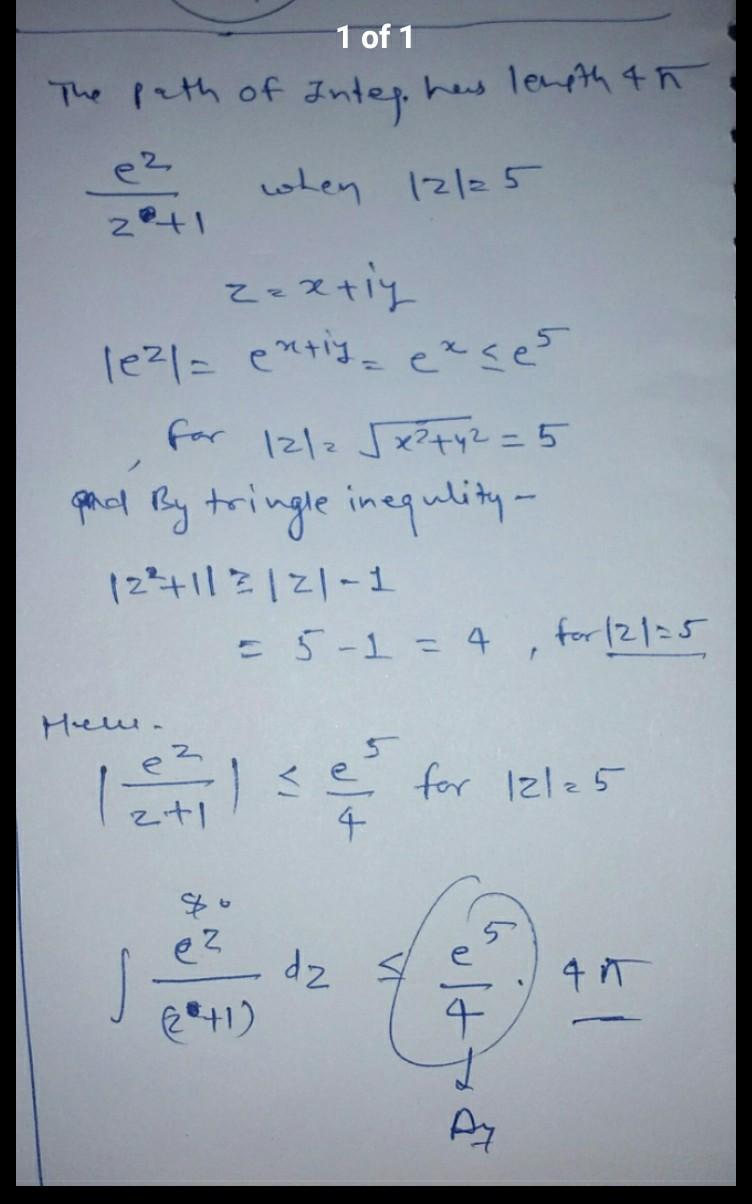 1 of 1
The path of Integ. has length 4π
e^z / z+1 when |z|=5
z = x+iy
|e^z| = e^x+iy = e^x ≤ e^5
for |z| = √x²+y² = 5
and By tringle inequlity -
|z²+1| ≥ |z|-1
= 5-1 = 4 , for |z|=5
|e^z / z+1| ≤ e^5 / 4 for |z|=5
So
∫ e^z / (z+1) dz ≤ e^5 / 4 . 4π